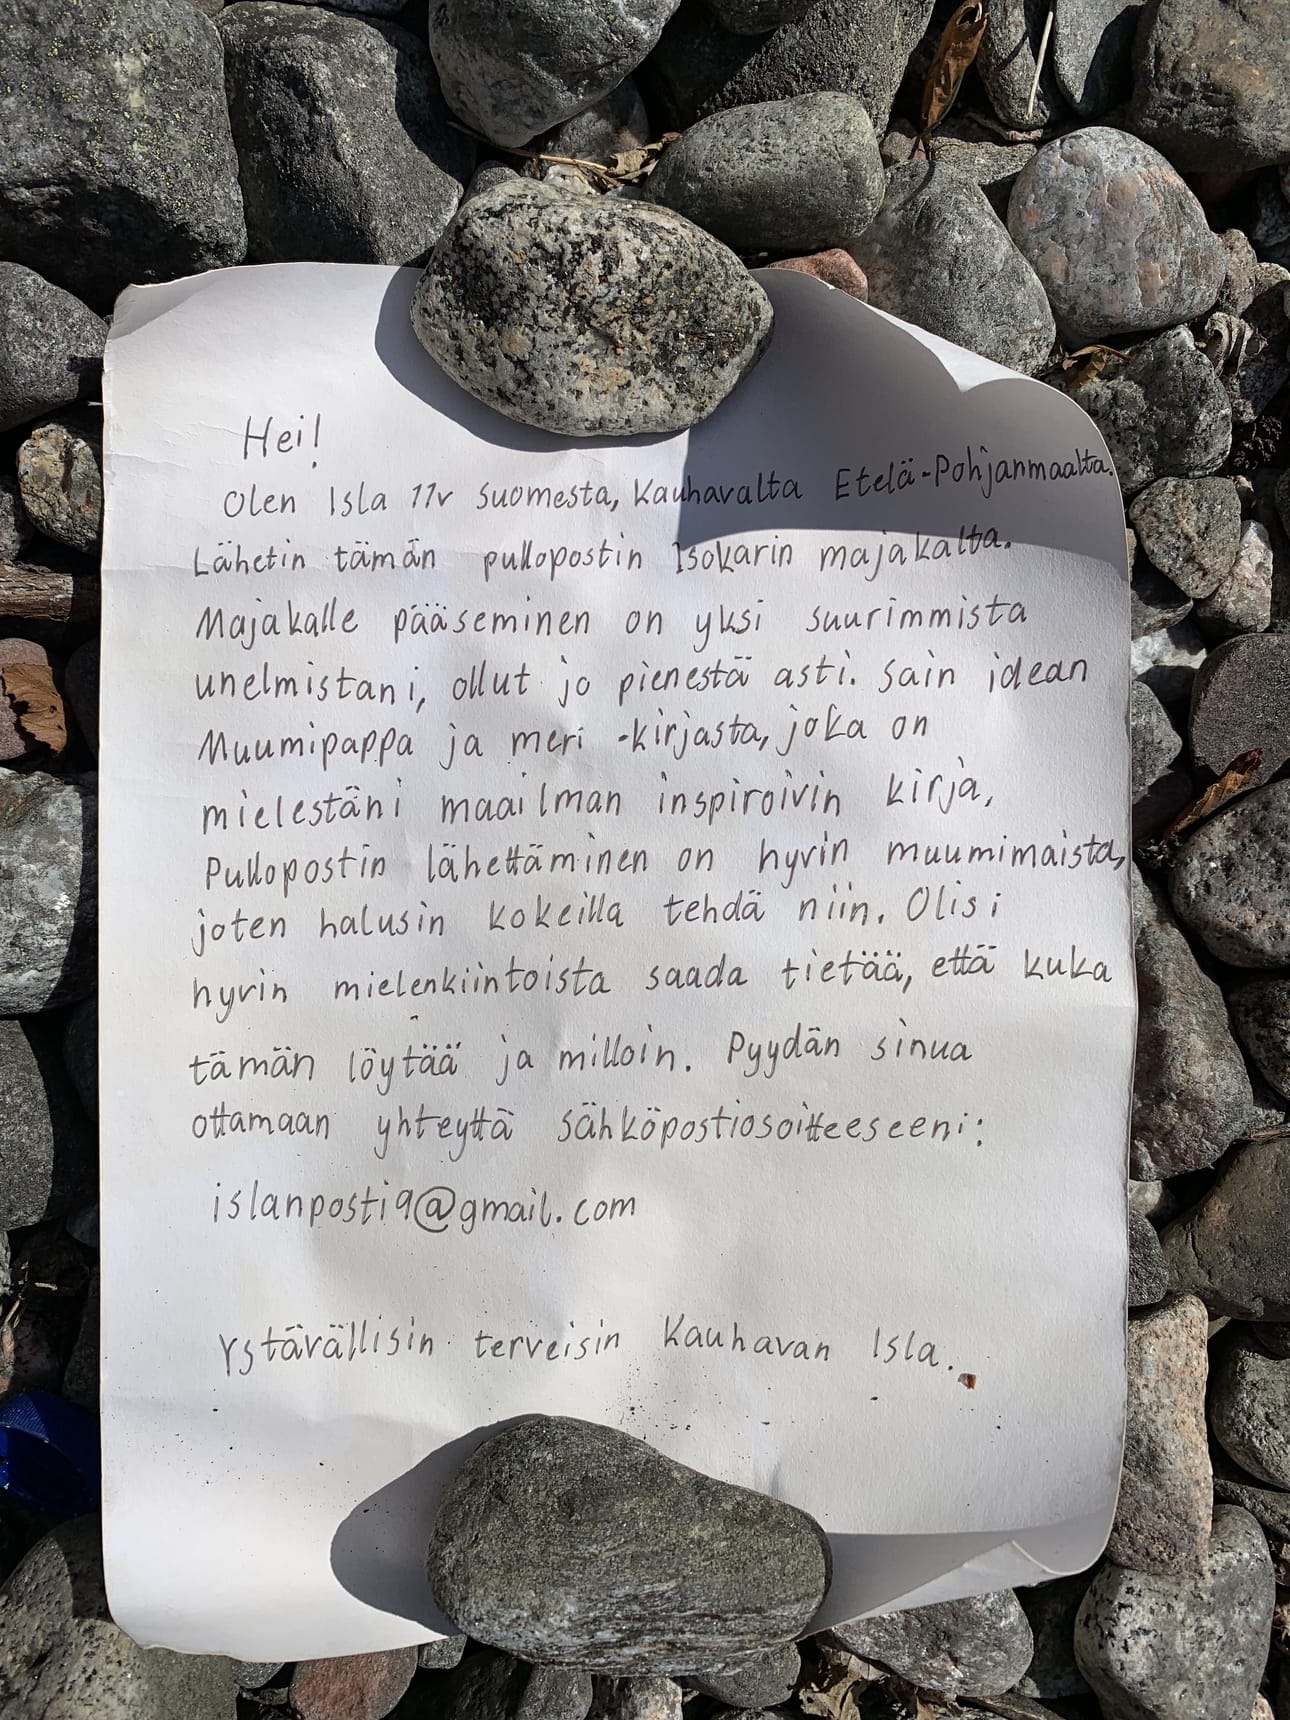 Hei!
Olen Isla 11v Suomesta, Kauhavalta Etelä-Pohjanmaalta.
Lähetin tämän pullopostin Isokarin majakalta.
Majakalle pääseminen on yksi suurimmista
unelmistani, ollut jo pienestä asti. Sain idean
Muumipappa ja meri -kirjasta, joka on
mielestäni maailman inspiroivin kirja,
Pullopostin lähettäminen on hyvin muumimaista,
joten halusin kokeilla tehdä niin. Olisi
hyvin mielenkiintoista saada tietää, että kuka
tämän löytää ja milloin. Pyydän sinua
ottamaan yhteyttä sähköpostiosoitteeseeni:
islanposti9@gmail.com
Ystävällisin terveisin Kauhavan Isla.